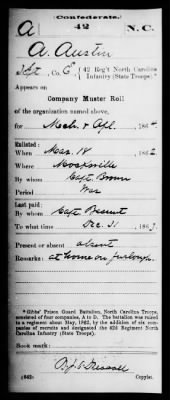 (Confederate.)
A 42 N.C.
A. Austin
Sept, Co. G, 42 Reg't North Carolina
Infantry (State Troops)*
Appears on
Company Muster Roll
of the organization named above,
for Mch & Apl, 1864
Enlisted:
When Mar. 18, 1862
Where Mocksville
By whom Capt. Brown
Period War
Last paid:
By whom Capt
To what time Dec. 31, 186
Present or absent absent
Remarks: at home on furlough.
*Gibbs' Prison Guard Battalion, North Carolina Troops,
consisted of four companies, A to D. The battalion was raised
to a regiment about May, 1862, by the addition of six com-
panies of recruits and designated the 42d Regiment North
Carolina Infantry (State Troops).
Book mark:
(642) Copyist.